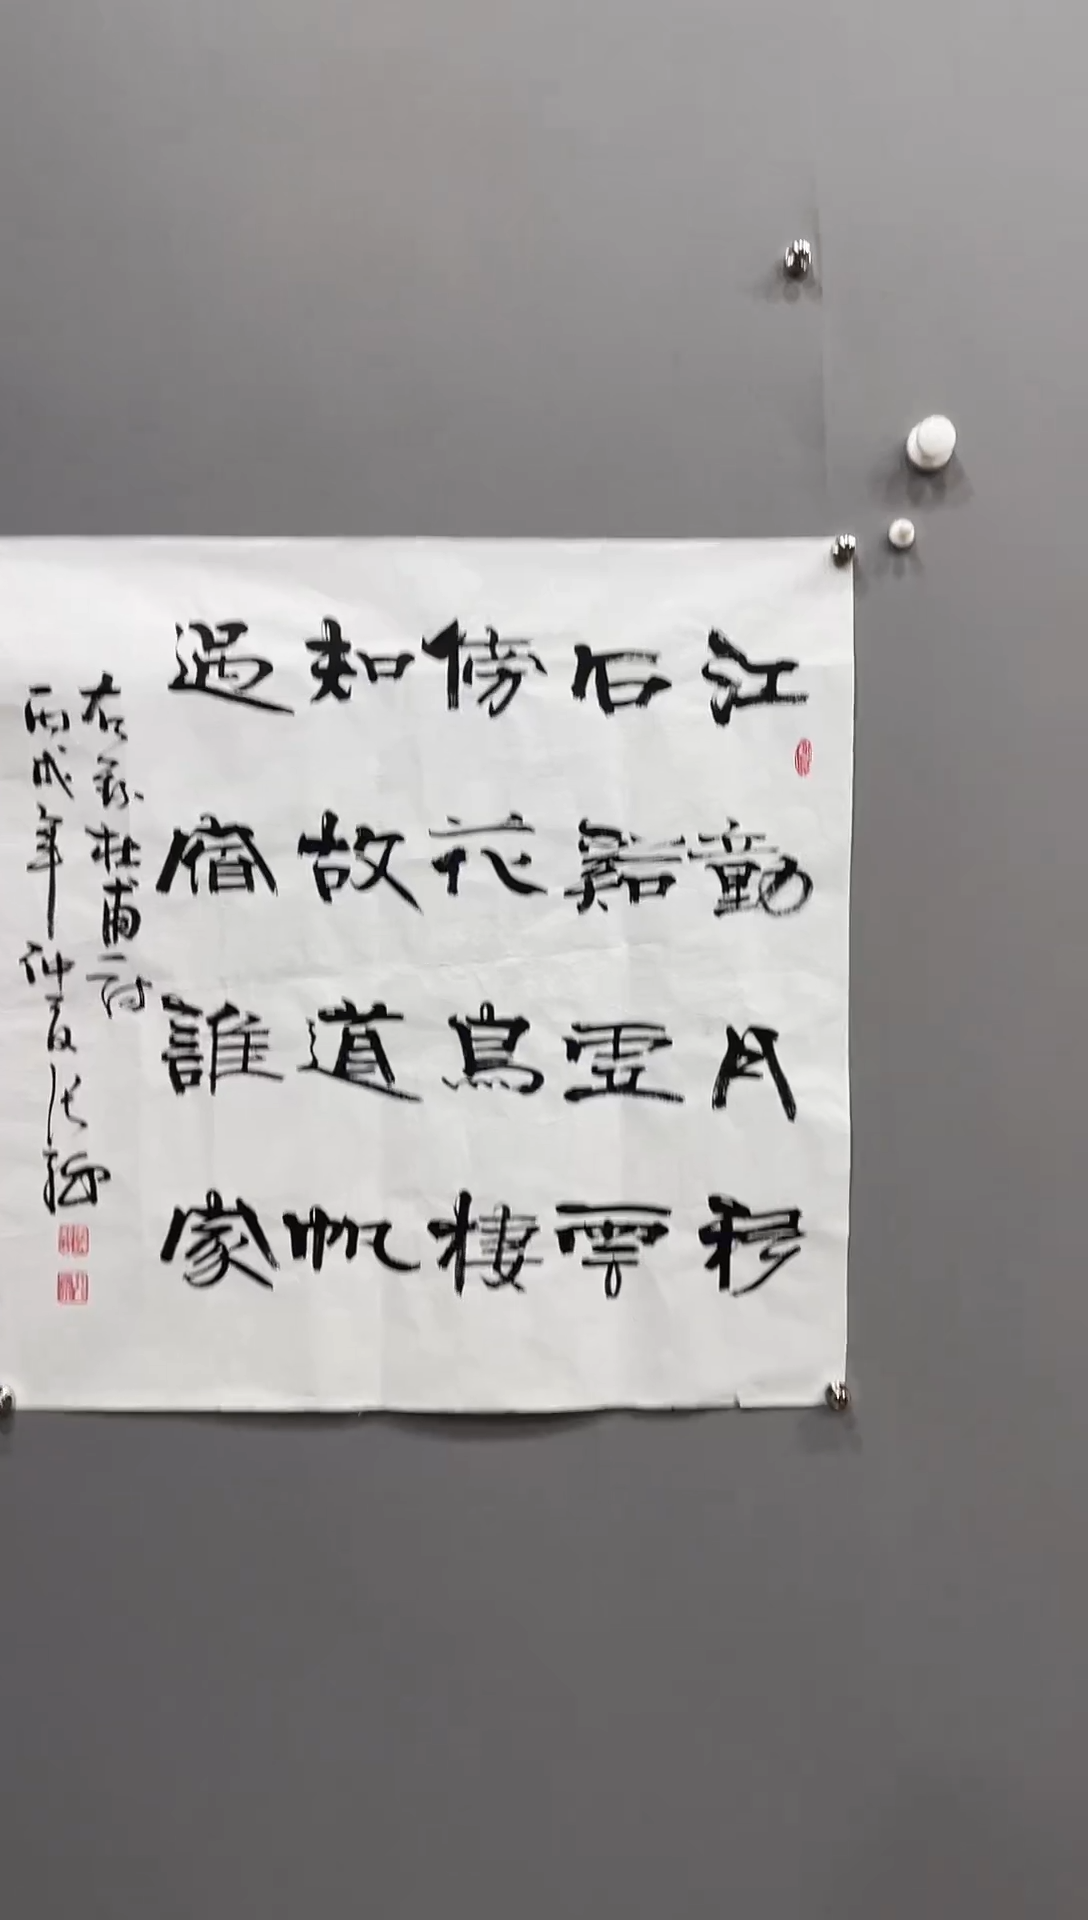 江動月移
石谿虛雲
傍花鳥棲
知故道帆
過宿誰家
右録杜甫一诗
丙戌年仲夏张